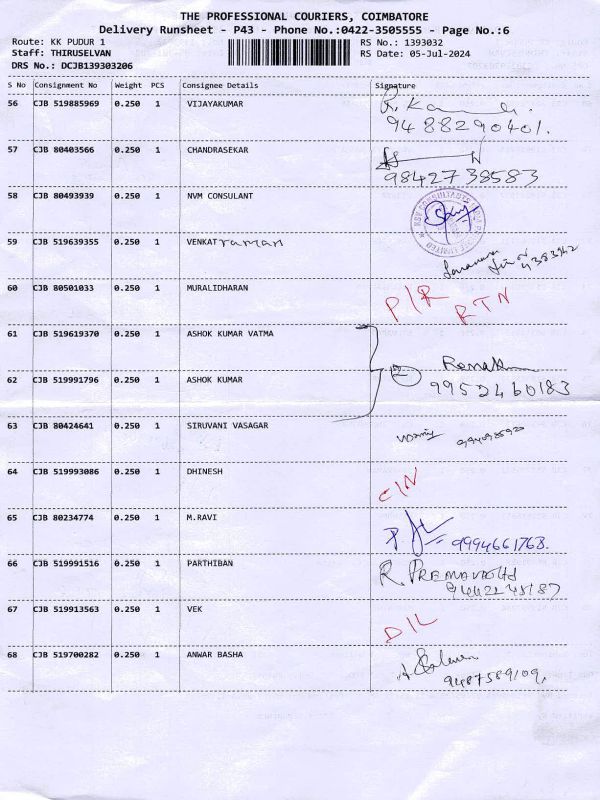 THE PROFESSIONAL COURIERS, COIMBATORE
Delivery Runsheet - P43 - Phone No.:0422-3505555 - Page No.:6
Route: KK PUDUR 1 RS No.: 1393032
Staff: THIRUSELVAN RS Date: 05-Jul-2024
DRS No.: DCJB139303206
S No Consignment No Weight PCS Consignee Details Signature
56 CJB 519885969 0.250 1 VIJAYAKUMAR R.
9488290401.
57 CJB 80403566 0.250 1 CHANDRASEKAR
9842738583
58 CJB 80493939 0.250 1 NVM CONSULANT
59 CJB 519639355 0.250 1 VENKATraman
60 CJB 80501033 0.250 1 MURALIDHARAN P/R RTN
61 CJB 519619370 0.250 1 ASHOK KUMAR VATMA
62 CJB 519991796 0.250 1 ASHOK KUMAR 2
9952460183
63 CJB 80424641 0.250 1 SIRUVANI VASAGAR
64 CJB 519993086 0.250 1 DHINESH C/N
65 CJB 80234774 0.250 1 M.RAVI 9994661768.
66 CJB 519991516 0.250 1 PARTHIBAN R.
67 CJB 519913563 0.250 1 VEK D/L
68 CJB 519700282 0.250 1 ANWAR BASHA
9487589109,